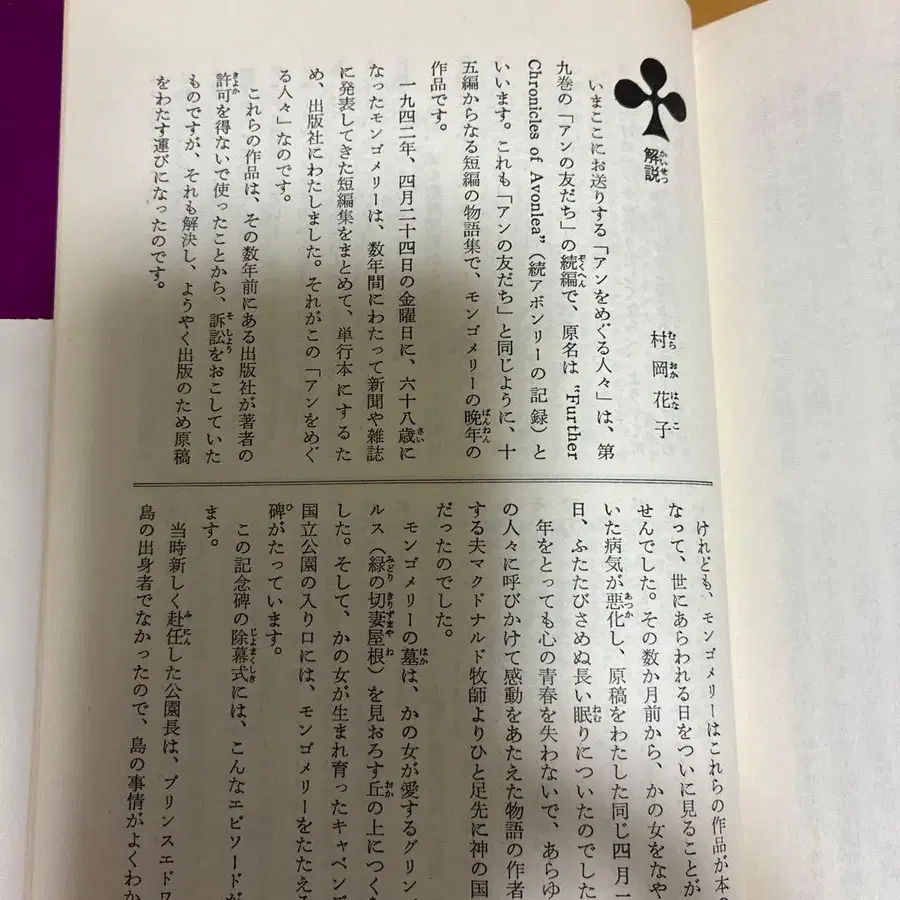 解説
村岡花子
いまここにお送りする「アンをめぐる人々」は、第
九巻の「アンの友だち」の続編で、原名は “Further
Chronicles of Avonlea”（続アボンリーの記録）と
いいます。これも「アンの友だち」と同じように、十
五編からなる短編の物語集で、モンゴメリーの晩年の
作品です。
一九四二年、四月二十四日の金曜日に、六十八歳に
なったモンゴメリーは、数年間にわたって新聞や雑誌
に発表してきた短編集をまとめて、単行本にするた
め、出版社にわたしました。それがこの「アンをめぐ
る人々」なのです。
これらの作品は、その数年前にある出版社が著者の
許可を得ないで使ったことから、訴訟をおこしていた
ものですが、それも解決し、ようやく出版のため原稿
をわたす運びになったのです。
けれども、モンゴメリーはこれらの作品が本の
なって、世にあらわれる日をついに見ることが
せんでした。その数か月前から、かの女をなや
いた病気が悪化し、原稿をわたした同じ四月
日、ふたたびさめぬ長い眠りについたのでした
年をとっても心の青春を失わないで、あらゆ
の人々に呼びかけて感動をあたえた物語の作者
する夫マクドナルド牧師よりひと足先に神の国
だったのでした。
モンゴメリーの墓は、かの女が愛するグリン
ルス（緑の切妻屋根）を見おろす丘の上につく
した。そして、かの女が生まれ育ったキャベン
国立公園の入り口には、モンゴメリーをたたえ
碑がたっています。
この記念碑の除幕式には、こんなエピソードが
ます。
当時新しく赴任した公園長は、プリンスエドワ
島の出身者でなかったので、島の事情がよくわか